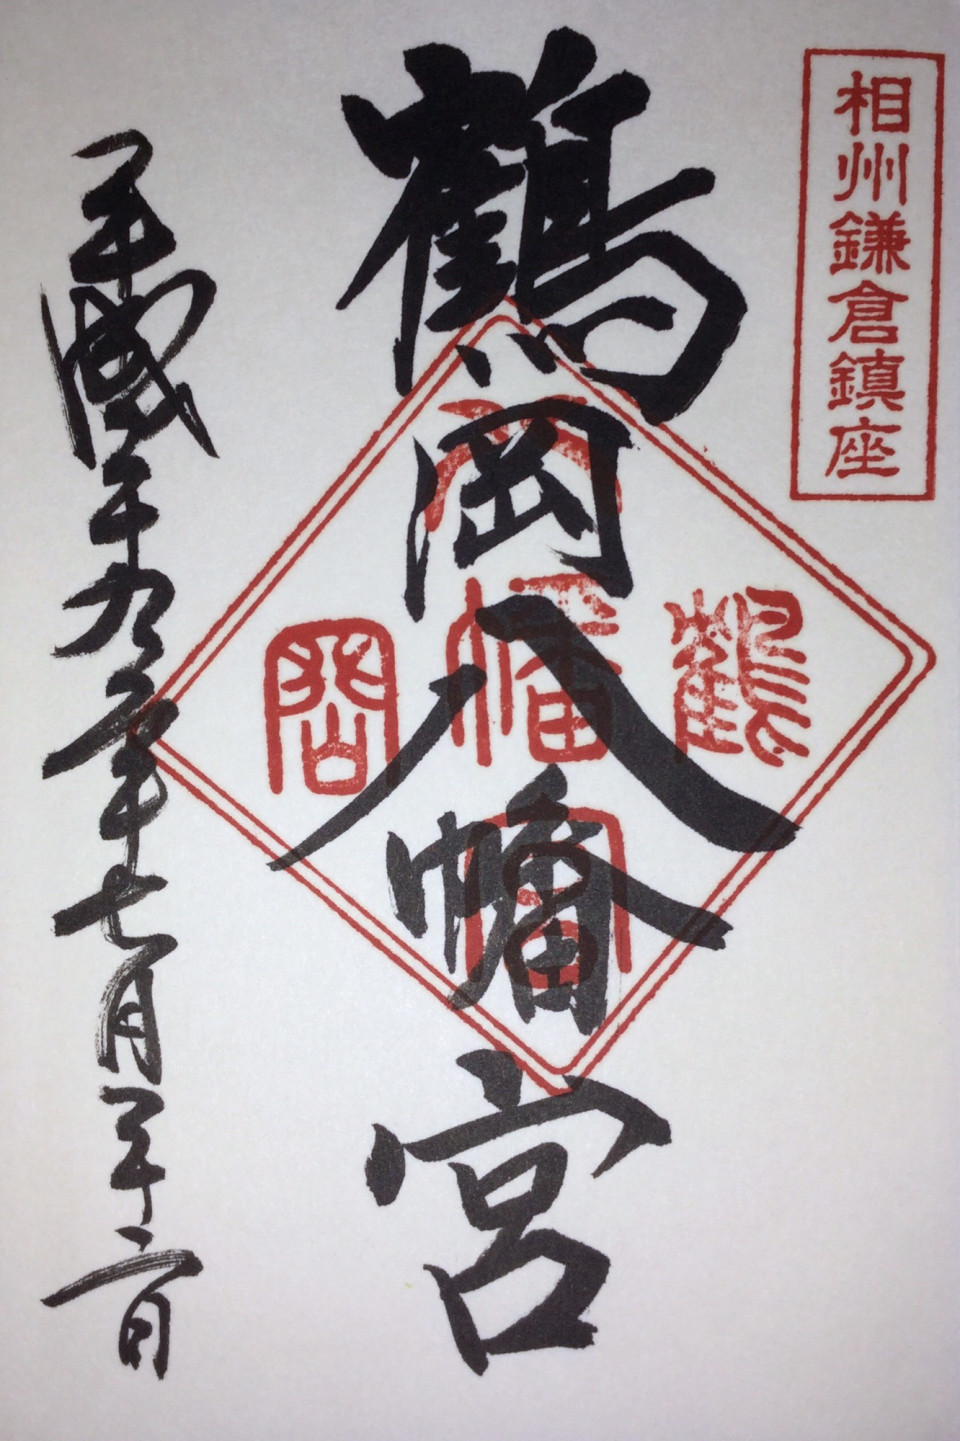 相州鎌倉鎮座
鶴岡八幡宮
鶴岡八幡宮
平成二十九年七月二十二日